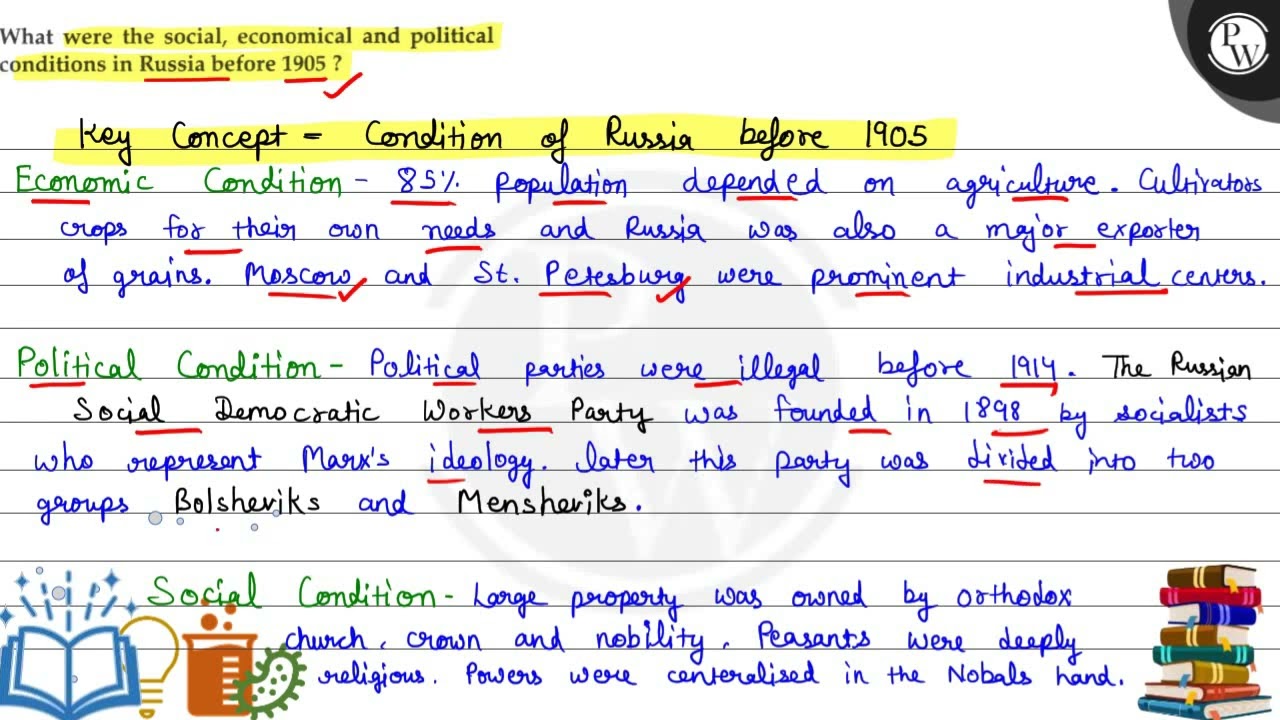 What were the social, economical and political
conditions in Russia before 1905 ?
PW
Key Concept = Condition of Russia before 1905
Economic Condition - 85% population depended on agriculture. Cultivators
crops for their own needs and Russia was also a major exporter
of grains. Moscow and St. Petesburg were prominent industrial centers.
Political Condition - Political parties were illegal before 1914. The Russian
Social Democratic Workers Party was founded in 1898 by socialists
who represent Marx's ideology. later this party was divided into two
groups Bolsheviks and Mensheviks.
Social Condition - Large property was owned by orthodox
church, crown and nobility. Peasants were deeply
religious. Powers were centeralised in the Nobals hand.